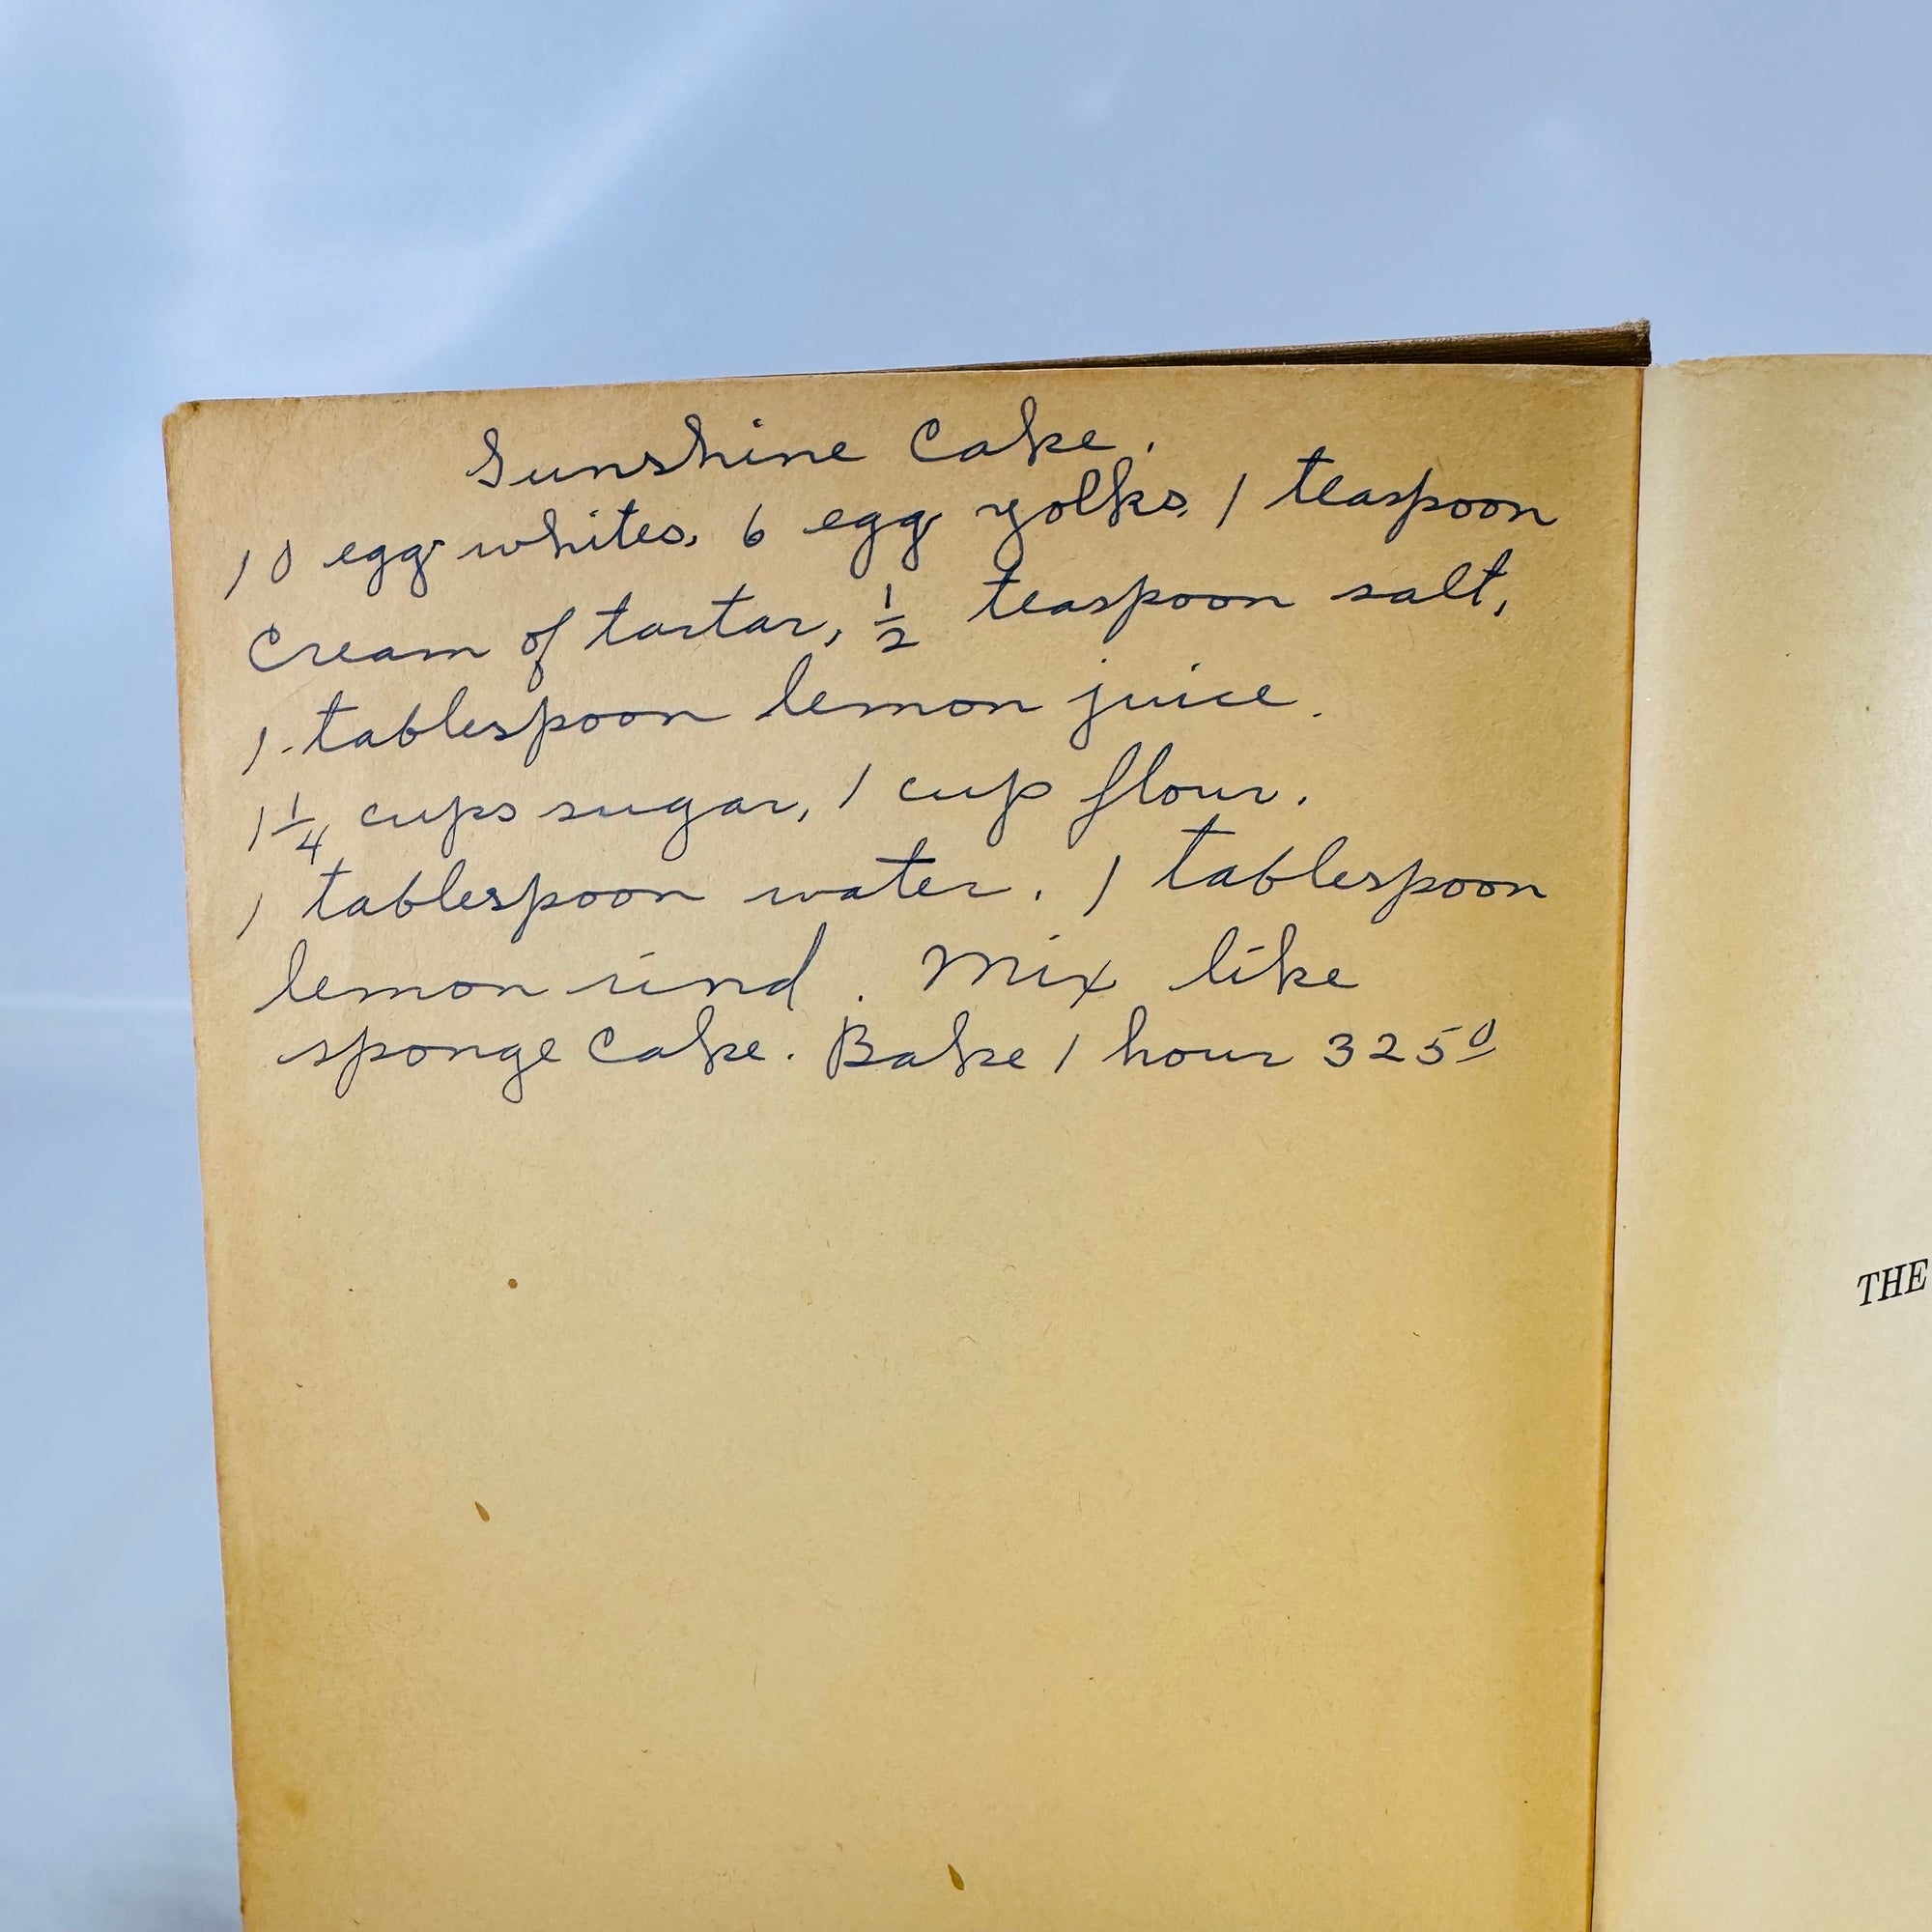 Sunshine Cake.
10 egg whites, 6 egg yolks, 1 teaspoon
Cream of tartar, 1/2 teaspoon salt,
1 tablespoon lemon juice.
1 1/4 cups sugar, 1 cup flour.
1 tablespoon water. 1 tablespoon
lemon rind. Mix like
sponge Cake. Bake 1 hour 325º
THE